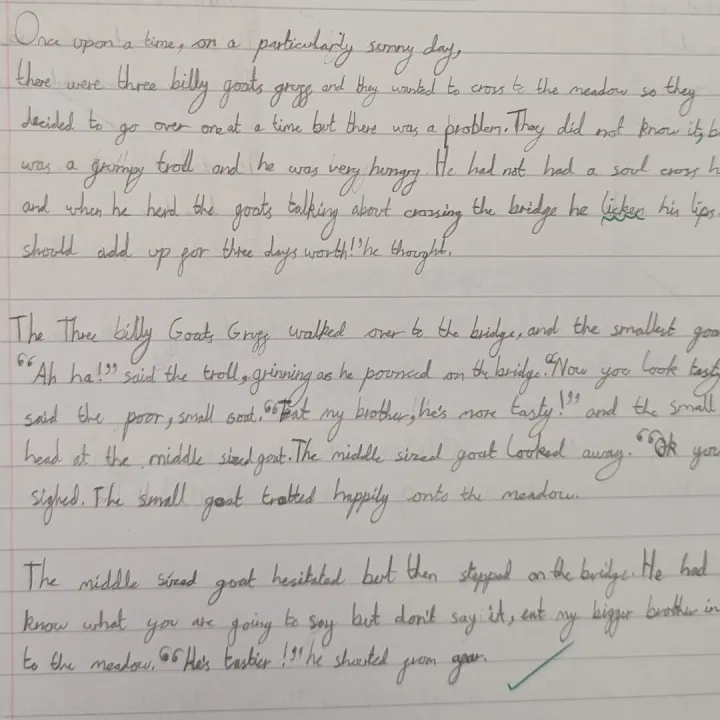 Once upon a time, on a particularly sunny day,
there were three billy goats gruff and they wanted to cross to the meadow so they
decided to go over one at a time but there was a problem. They did not know it, b
was a grumpy troll and he was very hungry. He had not had a soul cross h
and when he herd the goats talking about crossing the bridge he licken his lips.
should add up for three days worth!" he thought.
The Three billy Goats Gruff walked over to the bridge, and the smallest goa
"Ah ha!" said the troll, grinning as he pounced on the bridge. "Now you look tasty
said the poor, small goat. "Eat my brother, he's more tasty!" and the small
head at the middle sized goat. The middle sized goat looked away. "Ok you
sighed. The small goat trotted happily onto the meadow.
The middle sized goat hesitated but then stepped on the bridge. He had
know what you are going to say but don't say it, eat my bigger brother in
to the meadow. "He's tastier!" he shouted from afar.